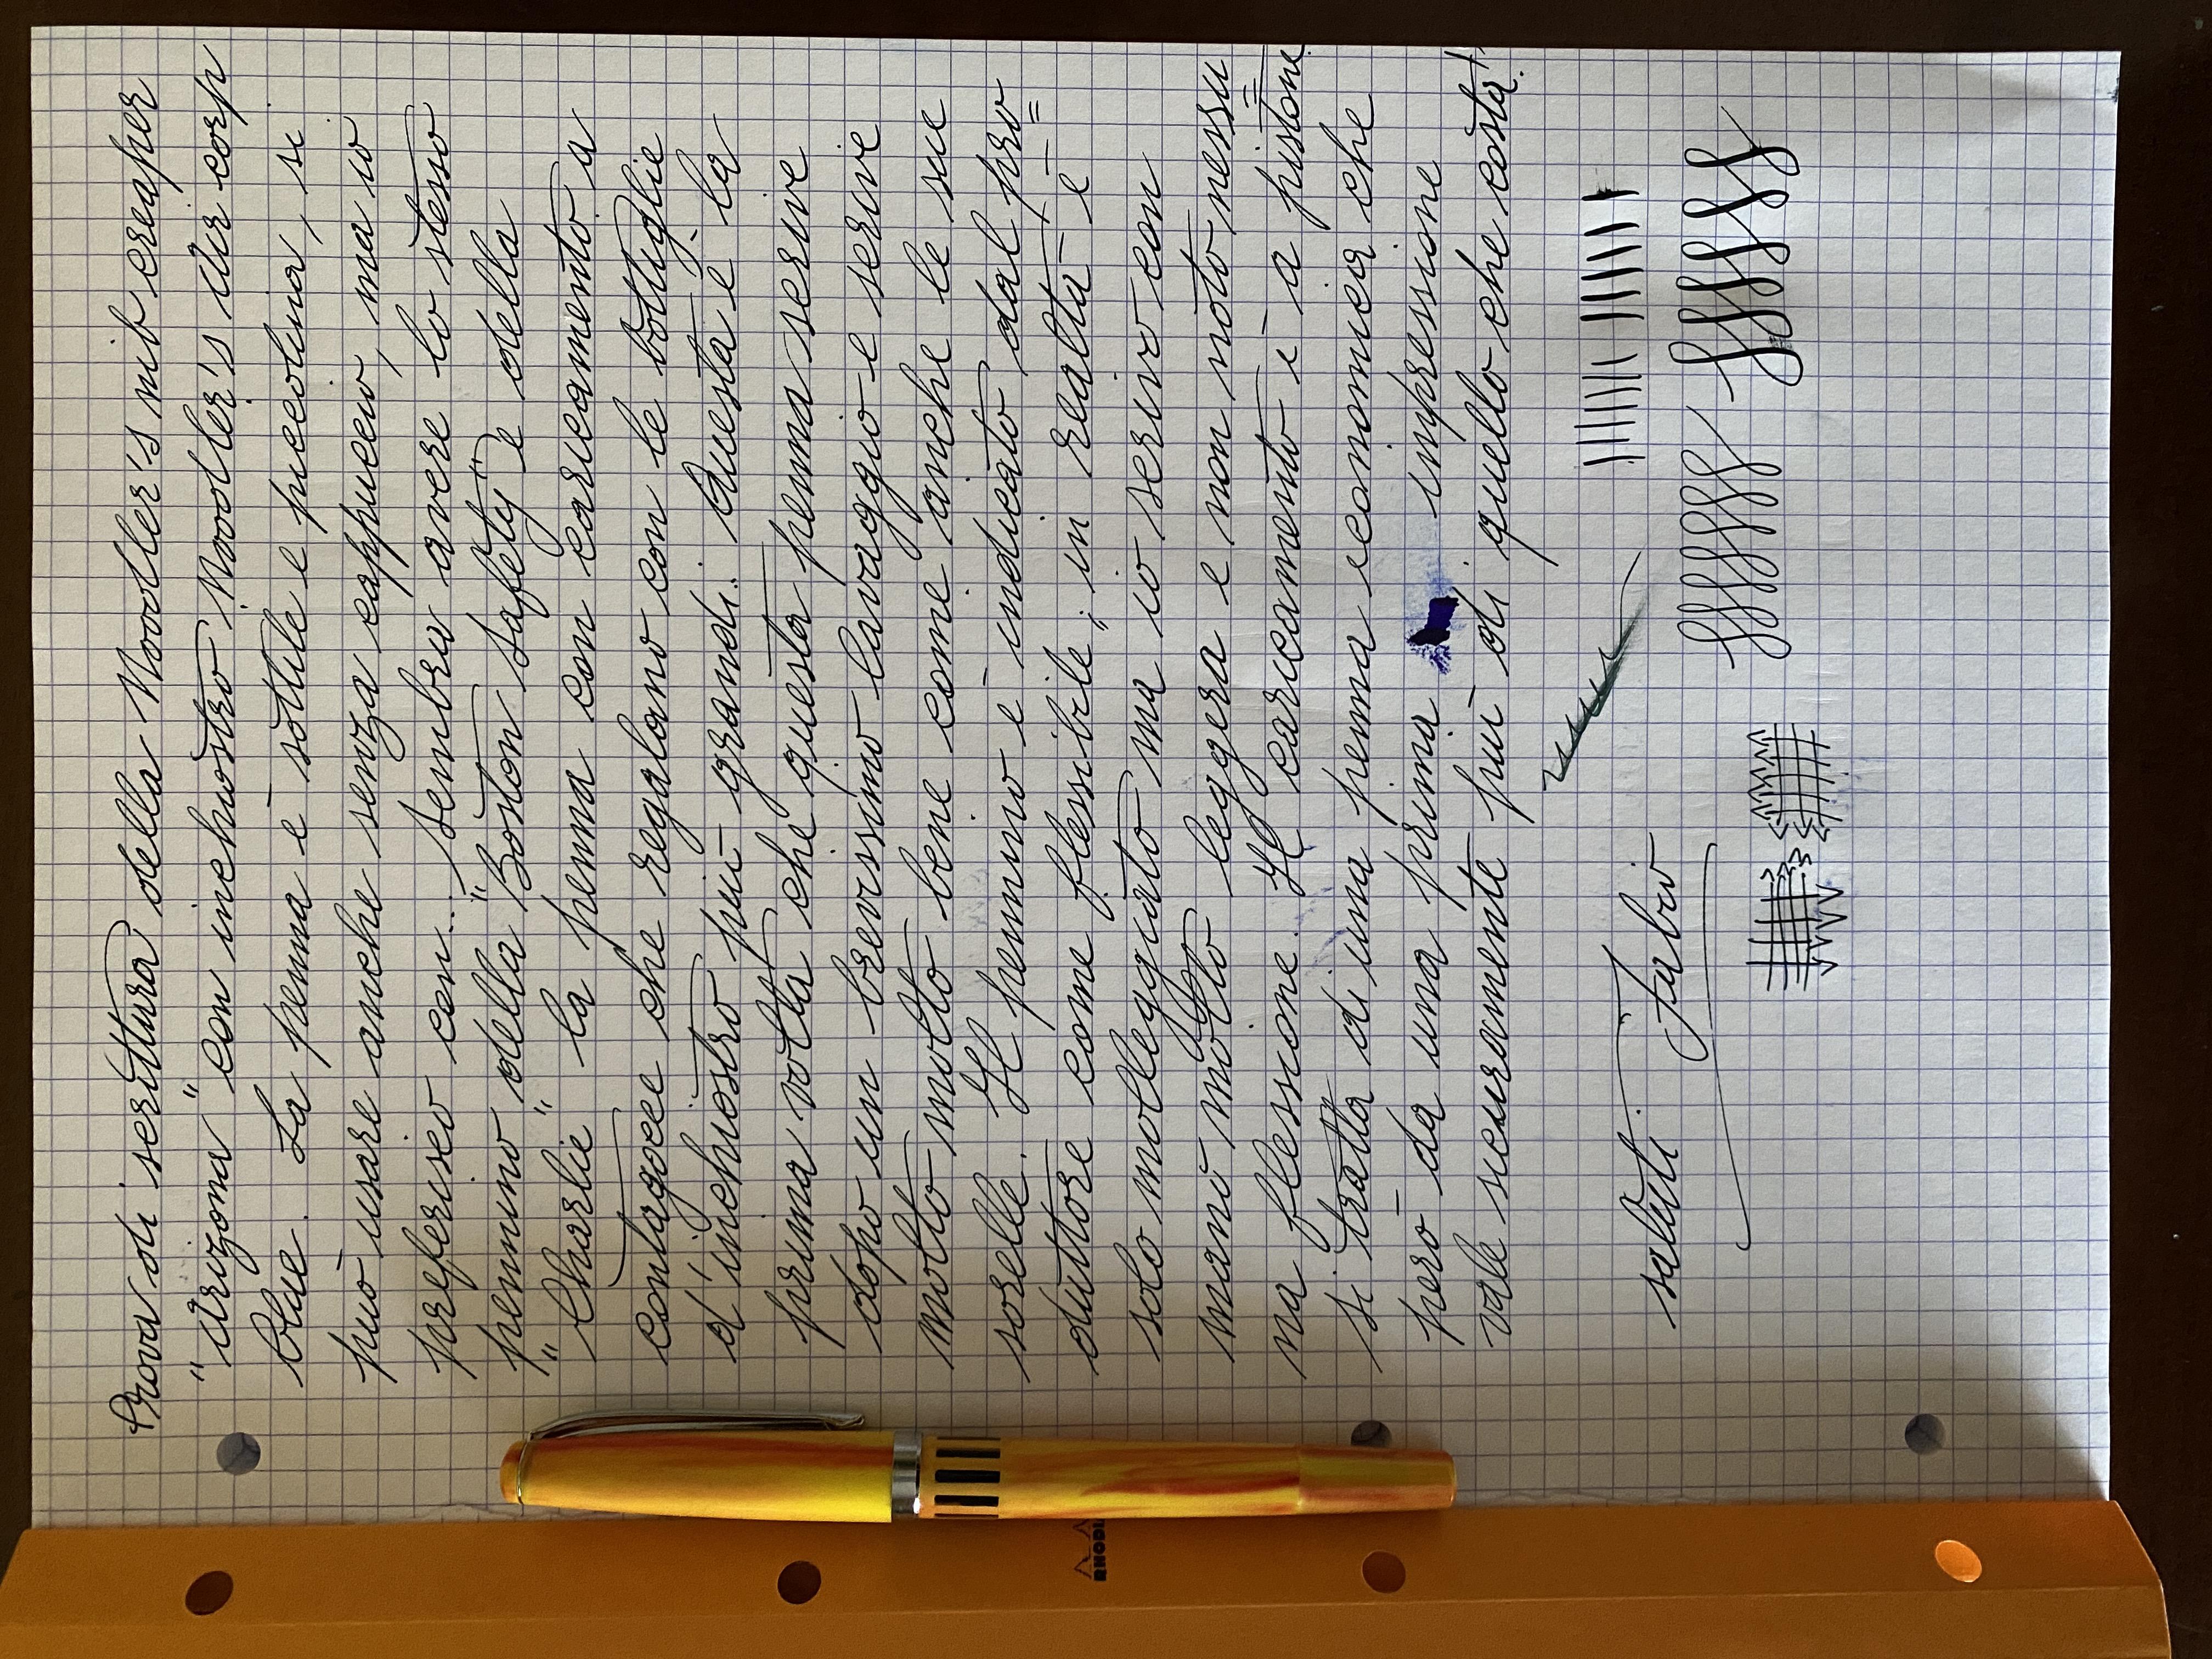 Prova di scrittura della Noodler's nib creaper
"Arizona" con inchiostro Noodler's Air corp
blue. La penna è sottile e piccolina, si
può usare anche senza cappuccio, ma io
preferisco con... Sembra avere lo stesso
pennino della "Boston Safety" e della
"Charlie" la penna con caricamento a
contagocce che regalano con le bottiglie
d'inchiostro più grandi. Questa è la
prima volta che questa penna scrive
dopo un brevissimo lavaggio e scrive
molto molto bene come anche le sue
sorelle. Il pennino è indicato dal pro=
duttore come flessibile, in realtà è
solo molleggiato ma io scrivo con
mano molto leggera e non noto nessu=
na flessione. Il caricamento è a pistone
si tratta di una penna economica che
però da una prima impressione
vale sicuramente più di quello che costa!
saluti Fabio
RHODIA